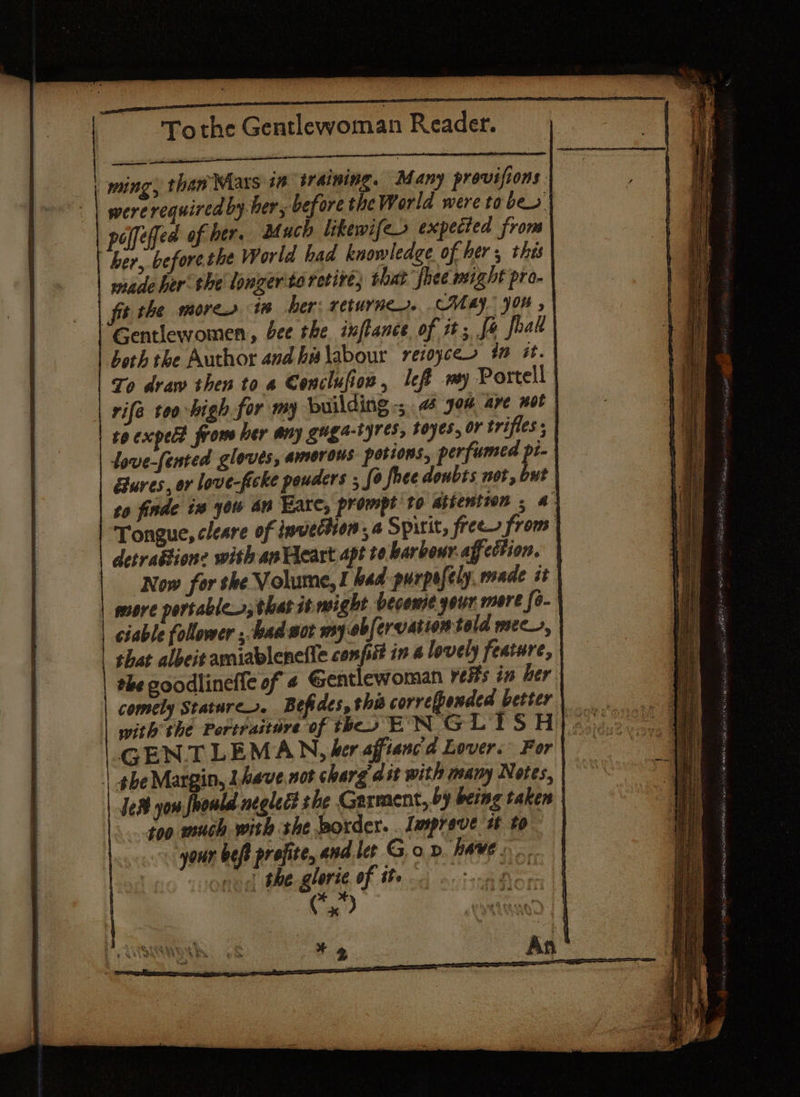 To the Gentlewoman Reader.
ming, than Mars in training. Many provisions
were required by her, before the World were to bee
possessed of her. Much likewise expected from
her, before the World had knowledge of her; this
made her the longer to retire, that shee might pro-
fit the more in her returne. May you,
Gentlewomen, bee the instance of it; so shall
both the Author and his labour reioyce in it.
To draw then to a Conclusion, lest my Portell
rise too high for my building; as you are not
to expect from her any guga-tyres, toyes, or trifles;
love-sented gloves, amorous potions, perfumed pi-
ctures, or love-sicke pouders; so shee doubts not, but
to finde in you an Eare, prompt to attention; a
Tongue, cleare of invection; a Spirit, free from
detraction: with an Heart apt to harbour affection.
Now for the Volume, I had purposely made it
more portable, that it might become your more so-
ciable follower; had not my observation told mee,
that albeit amiablenesse consist in a lovely feature,
the goodlinesse of a Gentlewoman rests in her
comely Stature. Besides, this corresponded better
with the Portraiture of the ENGLISH
GENTLEMAN, her affianc'd Lover. For
the Margin, I have not charg'd it with many Notes,
lest you should neglect the Garment, by being taken
too much with the border. Improve it to
your best profite, and let GOD have
the glorie of it.
(***)
* 2 An